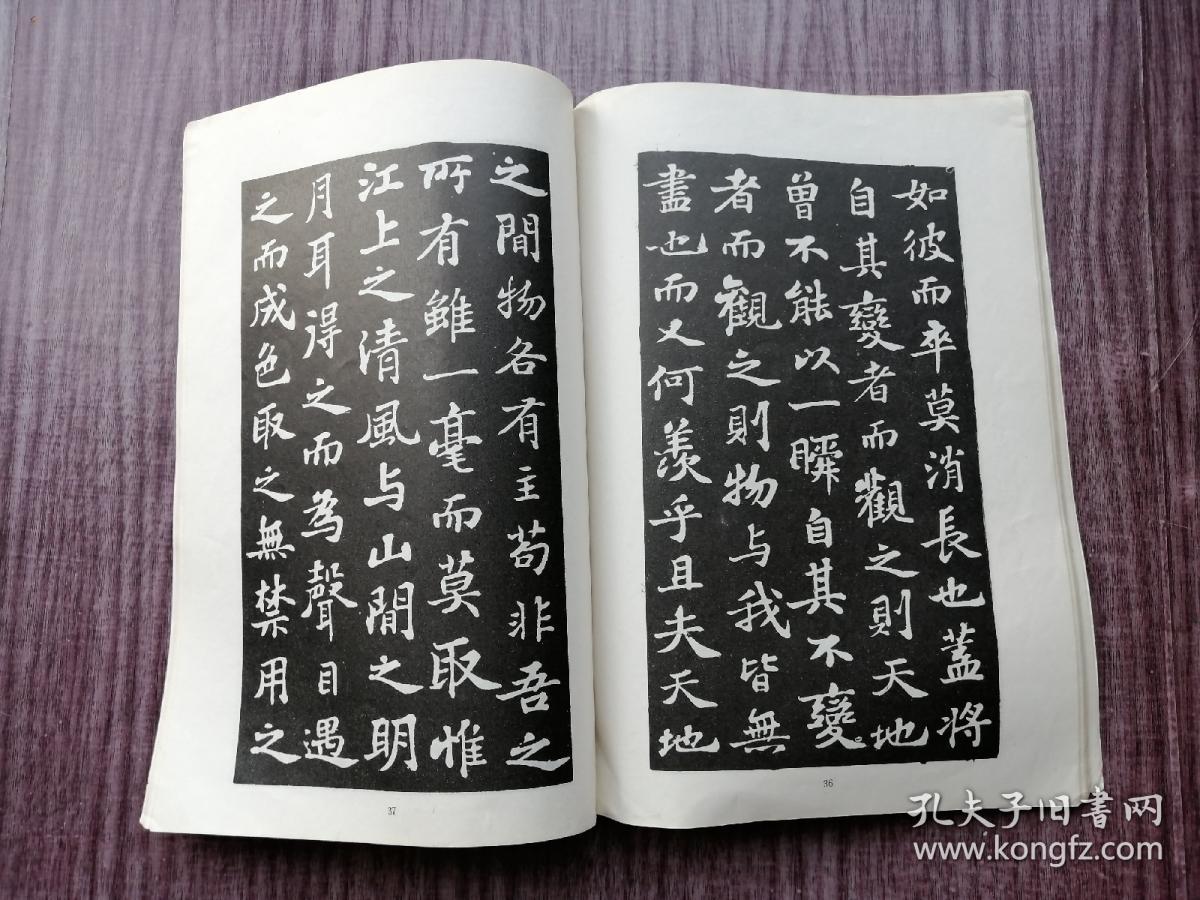 如彼而卒莫消長也蓋將
自其變者而觀之則天地
曾不能以一瞬自其不變
者而觀之則物与我皆無
盡也而又何羨乎且夫天地
36
之間物各有主茍非吾之
所有雖一毫而莫取惟
江上之清風与山間之明
月耳得之而為聲目遇
之而成色取之無禁用之
37
孔夫子旧书网
www.kongfz.com